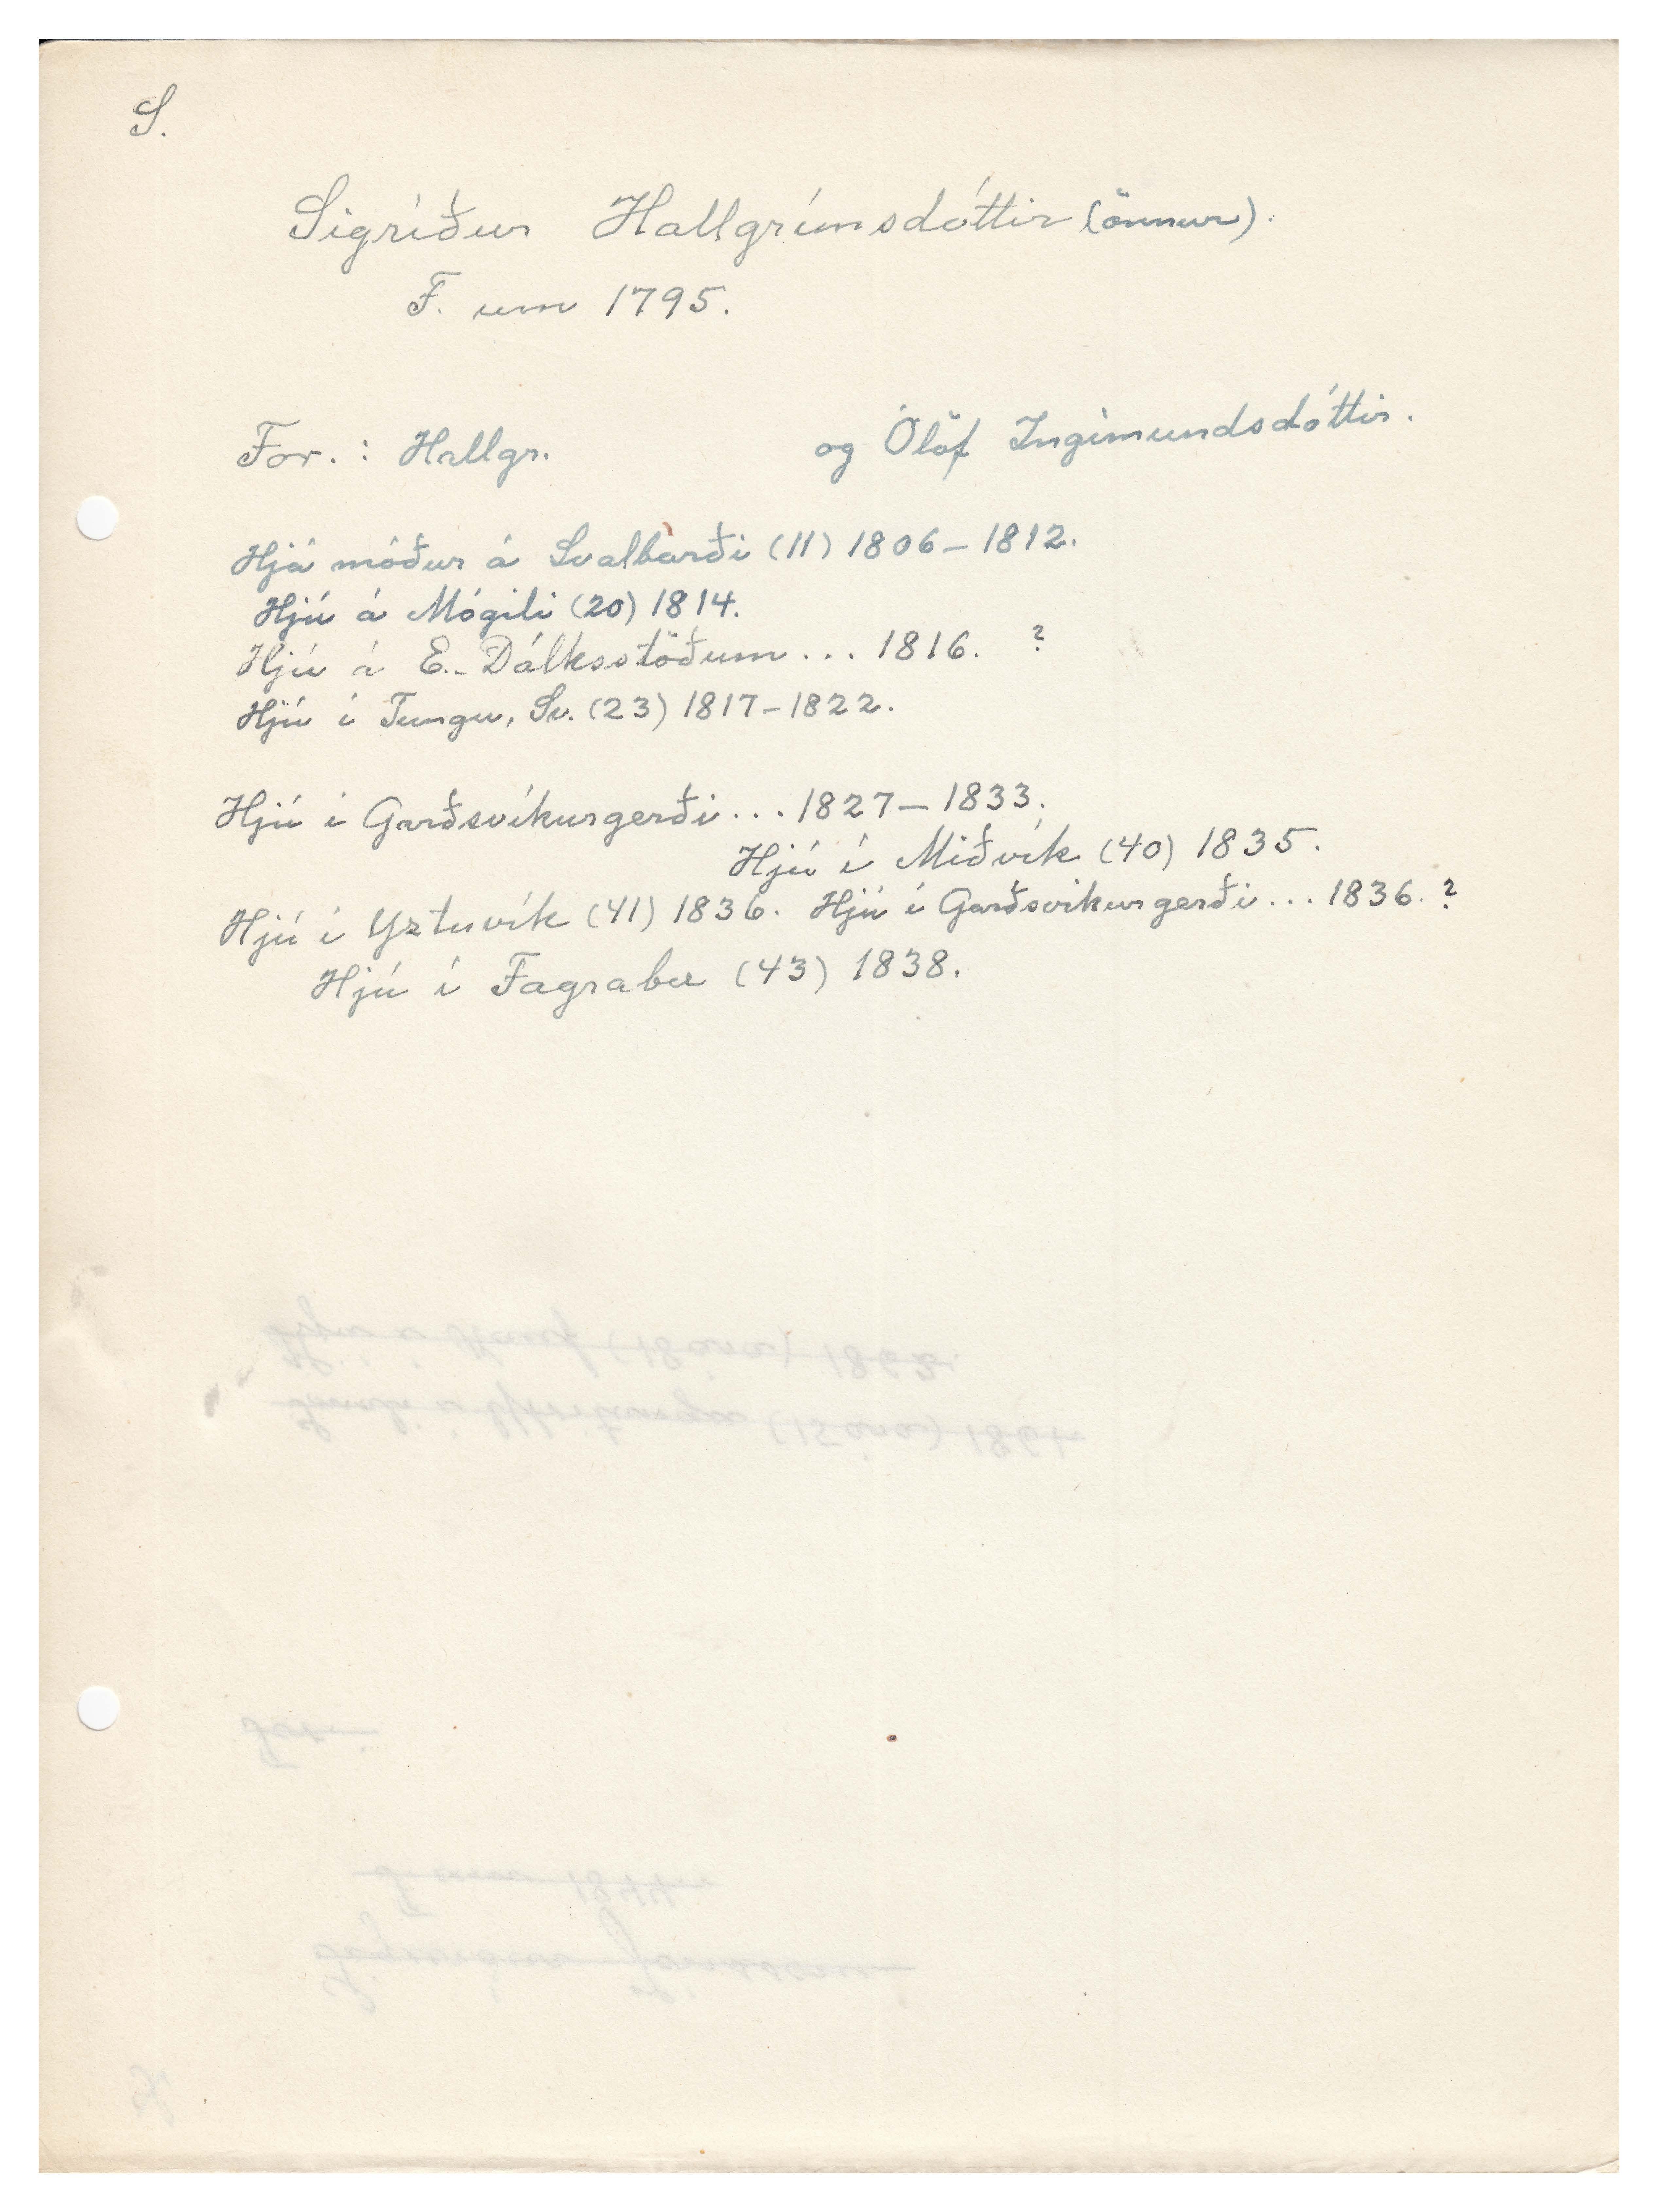 S.
Sigríður Hallgrímsdóttir (önnur).
F. um 1795.
For. : Hallgr. og Ólöf Ingimundsdóttir.
Hjá móður á Svalbarði (11) 1806-1812.
Hjú á Mógili (20) 1814.
Hjú á E.-Dálksstöðum... 1816. ?
Hjú í Tungu, Sv. (23) 1817-1822.
Hjú í Garðsvíkurgerði... 1827-1833.
Hjú í Miðvík (40) 1835.
Hjú í Yztuvík (41) 1836. Hjú í Garðsvíkurgerði... 1836. ?
Hjú í Fagrabæ (43) 1838.